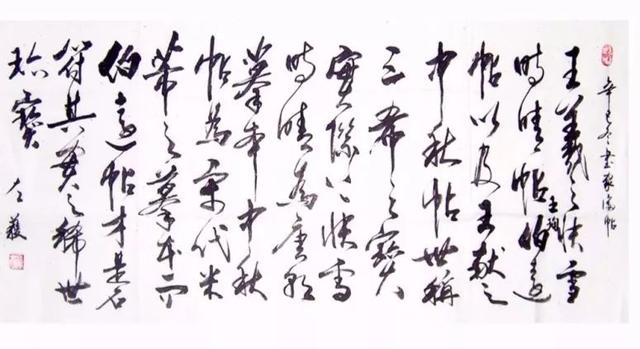 辛巳冬書
王羲之快雪
時晴帖伯遠
王珣
帖以及王獻之
中秋帖世稱
三希之寶
實際上快雪
時晴為唐
摹本中秋
帖為宋代米
芾之摹本而
伯遠帖才是名
符其實之稀世
珍寶